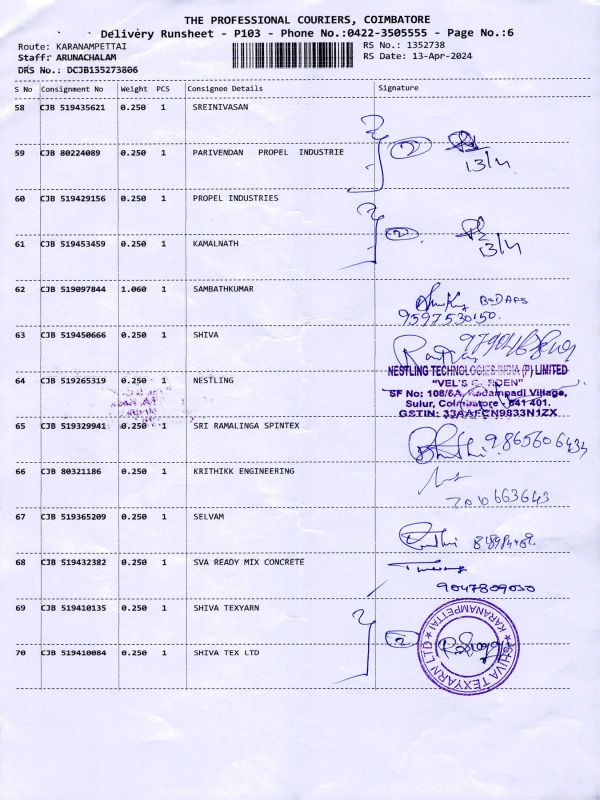 THE PROFESSIONAL COURIERS, COIMBATORE
Delivery Runsheet - P103 - Phone No.:0422-3505555 - Page No.:6
Route: KARANAMPETTAI
RS No.: 1352738
Staff: ARUNACHALAM
RS Date: 13-Apr-2024
DRS No.: DCJB135273806
S No Consignment No Weight PCS Consignee Details Signature
58 CJB 519435621 0.250 1 SREINIVASAN
59 CJB 80224089 0.250 1 PARIVENDAN PROPEL INDUSTRIE
2
13/4
60 CJB 519429156 0.250 1 PROPEL INDUSTRIES
61 CJB 519453459 0.250 1 KAMALNATH
2
13/4
62 CJB 519097844 1.060 1 SAMBATHKUMAR
9597530150
63 CJB 519450666 0.250 1 SHIVA
64 CJB 519265319 0.250 1 NESTLING
NESTLING TECHNOLOGIES INDIA (P) LIMITED
"VEL'S GARDEN"
SF No: 108/6A, Kadampadi Village,
Sulur, Coimbatore - 641 401.
GSTIN: 33AAFCN9833N1ZX
65 CJB 519329941 0.250 1 SRI RAMALINGA SPINTEX
9865606434
66 CJB 80321186 0.250 1 KRITHIKK ENGINEERING
67 CJB 519365209 0.250 1 SELVAM
68 CJB 519432382 0.250 1 SVA READY MIX CONCRETE
9047809030
69 CJB 519410135 0.250 1 SHIVA TEXYARN
70 CJB 519410084 0.250 1 SHIVA TEX LTD
2
SHIVA TEXYARN LTD
KARANAMPETTAI